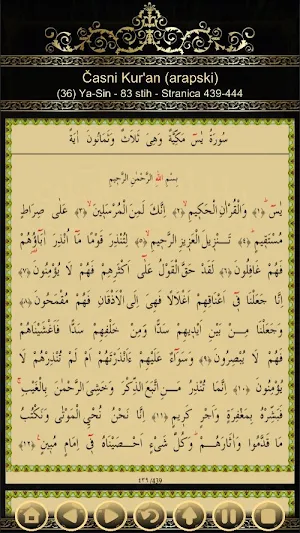 Časni Kur'an (arapski)
(36) Ya-Sin - 83 stih - Stranica 439-444
سُورَةُ يٰسٓ مَكِّيَّةٌ وَهِيَ ثَلَاثٌ وَثَمَانُونَ اٰيَةً
بِسْمِ اللّٰهِ الرَّحْمٰنِ الرَّحِيمِ
يٰسٓ ﴿١﴾ وَالْقُرْاٰنِ الْحَكِيمِ ﴿٢﴾ اِنَّكَ لَمِنَ الْمُرْسَلِينَ ﴿٣﴾ عَلٰى صِرَاطٍ
مُسْتَقِيمٍ ﴿٤﴾ تَنْزِيلَ الْعَزِيزِ الرَّحِيمِ ﴿٥﴾ لِتُنْذِرَ قَوْمًا مَٓا اُنْذِرَ اٰبَٓاؤُ۬هُمْ
فَهُمْ غَافِلُونَ ﴿٦﴾ لَقَدْ حَقَّ الْقَوْلُ عَلٰٓى اَكْثَرِهِمْ فَهُمْ لَا يُؤْمِنُونَ ﴿٧﴾
اِنَّا جَعَلْنَا فِٓي اَعْنَاقِهِمْ اَغْلَالًا فَهِيَ اِلَى الْاَذْقَانِ فَهُمْ مُقْمَحُونَ ﴿٨﴾
وَجَعَلْنَا مِنْ بَيْنِ اَيْدِيهِمْ سَدًّا وَمِنْ خَلْفِهِمْ سَدًّا فَاَغْشَيْنَاهُمْ
فَهُمْ لَا يُبْصِرُونَ ﴿٩﴾ وَسَوَٓاءٌ عَلَيْهِمْ ءَاَنْذَرْتَهُمْ اَمْ لَمْ تُنْذِرْهُمْ لَا
يُؤْمِنُونَ ﴿١٠﴾ اِنَّمَا تُنْذِرُ مَنِ اتَّبَعَ الذِّكْرَ وَخَشِيَ الرَّحْمٰنَ بِالْغَيْبِ
فَبَشِّرْهُ بِمَغْفِرَةٍ وَاَجْرٍ كَرِيمٍ ﴿١١﴾ اِنَّا نَحْنُ نُحْيِ الْمَوْتٰى وَنَكْتُبُ
مَا قَدَّمُوا وَاٰثَارَهُمْ وَكُلَّ شَيْءٍ اَحْصَيْنَاهُ فٓي اِمَامٍ مُبِينٍ ﴿١٢﴾
٤٣٩/439